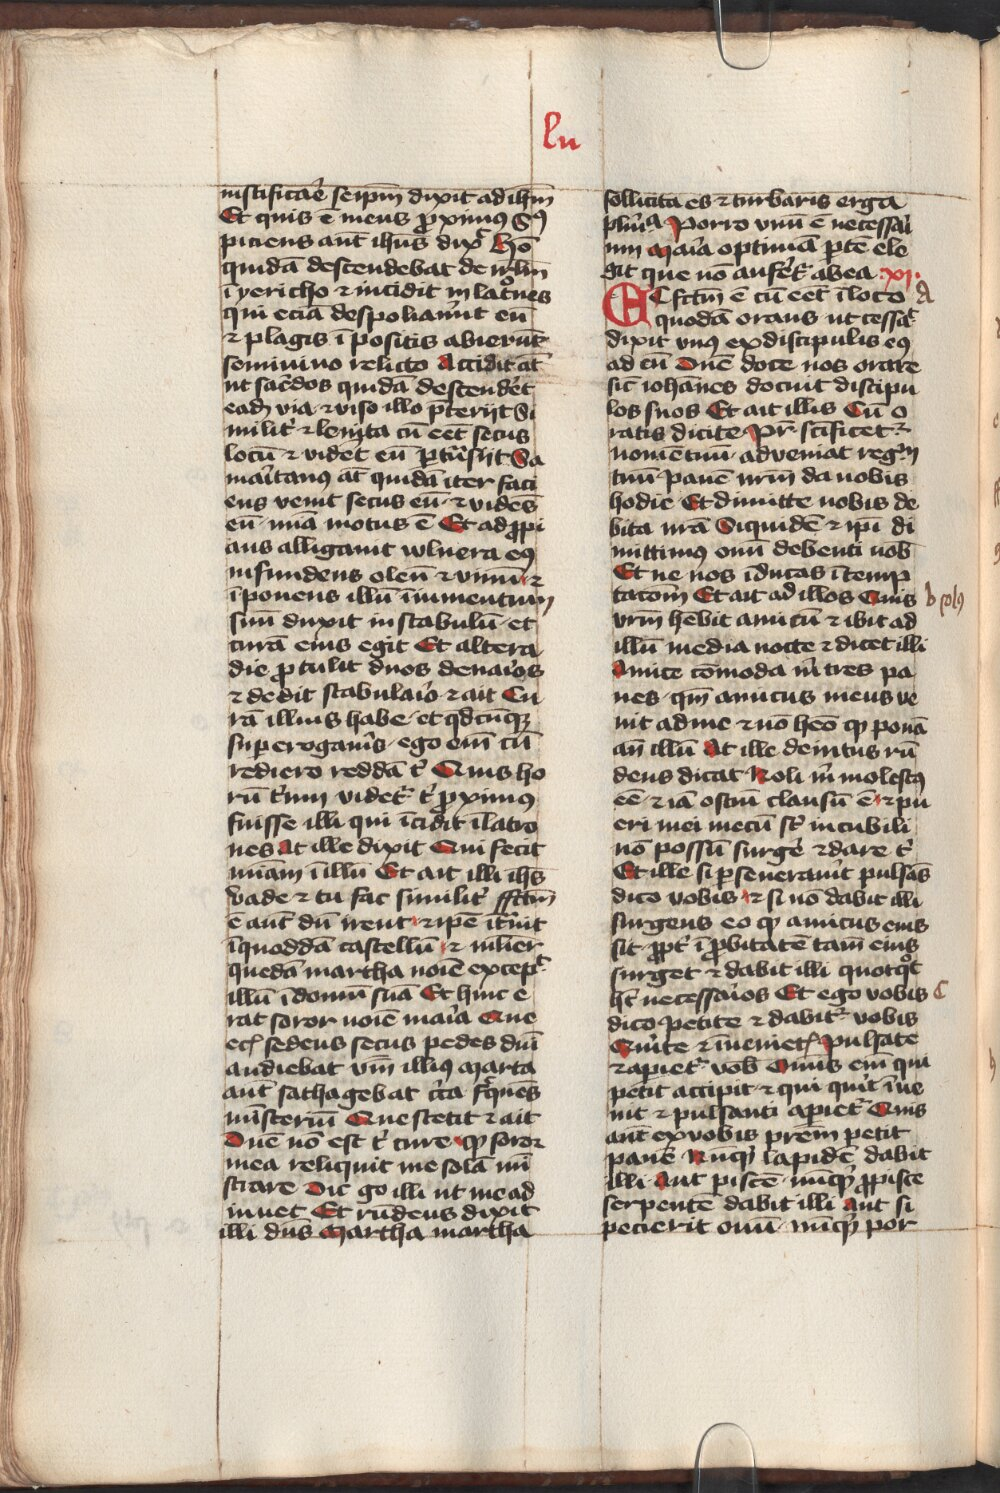 lu
iustificare seipm̄ dixit ad ihm̄
Et quis ē meus proximus Sꝰ
piciens aūt ihūs dixͭ Hō
quidā descendebat de irlm̄
ī yericho ⁊ incidit in latͦnes
qui eciā despoliauūt eū
⁊ plagis īpositis abierūt
seminino relicto Accidit āt
ut sacdos quidā descendēt
eadē via ⁊ viso illo pͭteriit Si
milit᷑ ⁊ leuita cū eēt secus
locū ⁊ videt eū ptͣnsijt Sa
maͥtanus āt quidā iter faci
ens venit secus eū ⁊ vidēs
eū mīa motus ē Et ad ꝓpi
ans alligauit wlnera eꝰ
infundens oleū ⁊ vinū ⁊
īponens illū īiumentum
suū duxit in stabulū et
curā eius egit Et altera
die protulit duos denaͥos
⁊ dedit stabulaͥo ⁊ ait Cu
rā illius habe et qdcūqꝫ
supererogaueͥs ego em̄ cū
rediero reddā tͥ Quis ho
rū tͥum videt᷑ tͥ proximꝰ
fuisse illi qui īcidit ī latro
nes At ille dixit Qui fecit
mīam ī illū Et ait illi ihs̄
Vade ⁊ tu fac similit᷑ ffctm̄
ē aut dū irent ⁊ ipē ītͣuit
ī quoddā castellū ⁊ mlier
quedā martha noīe exceptͭ
illū ī domū suā Et huic e
rat soror noīe maͥa Que
ecͭ sedens secus pedes dnī
audiebat vm̄ illiꝰ Marta
aūt sathagebat cͥca fͣquēs
mīsteriū Que stetit ⁊ ait
Dnē nō est tͥ cure qꝫ soror
mea reliquit me solā mī
strare Dic go illi ut me ad
iuuet Et rn̄dens dixit
illi dn̄s Martha martha
sollicita es ⁊ turbaris erga
plīmͣa Porro vnū ē necessaͥ
um Maͥa optimā ptē ele
git que nō aufer̄t ab ea ·xi·
ECfctm̄ ē cū eēt ī loco
quodā orans ut cessaͭ
dixit vnꝰ ex discipulis eꝰ
ad eū Dnē doce nos orare
sic̄ iohānes docuit discipu
los suos Et ait illis Cū o
ratis dicite Pr̄ scīficet᷑
nomē tuū adveniat regm̄
tuū panē nrm̄ da nobis
hodie Et dimitte nobis de
bita nrā Siquidē ⁊ ipī di
mittimus omī debenti nob̄
Et ne nos īducas ītemp
tacōm̄ Et ait ad illos Quis
vrm̄ hēbit amicū ⁊ ibit ad
illū media nocte ⁊ dicet illi
Amice cōmoda mͥ tres pa
nes qm̄ amicus meus ve
nit ad me ⁊ nō heō qꝫ ponā
an̄ illū At ille deintus rn̄
dens dicat Noli mͥ molestꝰ
eē ⁊ iā ostiū clausū ē ⁊ pu
eri mei mecū st᷑ in cubili
nō possū surge ⁊ dare tͥ
Et ille si pseuerauīt pulsās
dico vobis ⁊ si nō dabit illi
surgens eo qꝫ amicus eius
sit ꝓpt᷑ īprobitatē tam̄ eius
surget ⁊ dabit illi quotqͦt
ht̄ necessaͥos Et ego vobis
dico petite ⁊ dabit᷑ vobis
Queͥte ⁊ īuenietͭ pulsate
⁊ apiet᷑ vob̄ Omīs em̄ qui
petit accipit ⁊ qui queͥt īue
nit ⁊ pulsanti apiet᷑ Quis
aūt ex vobis prēm petit
panē Nūqͥd lapidē dabit
illi Aut piscē nūqͥd ꝓ pisce
serpentē dabit illi Aut si
pecierit ouū nūqͥd por
a
b
c